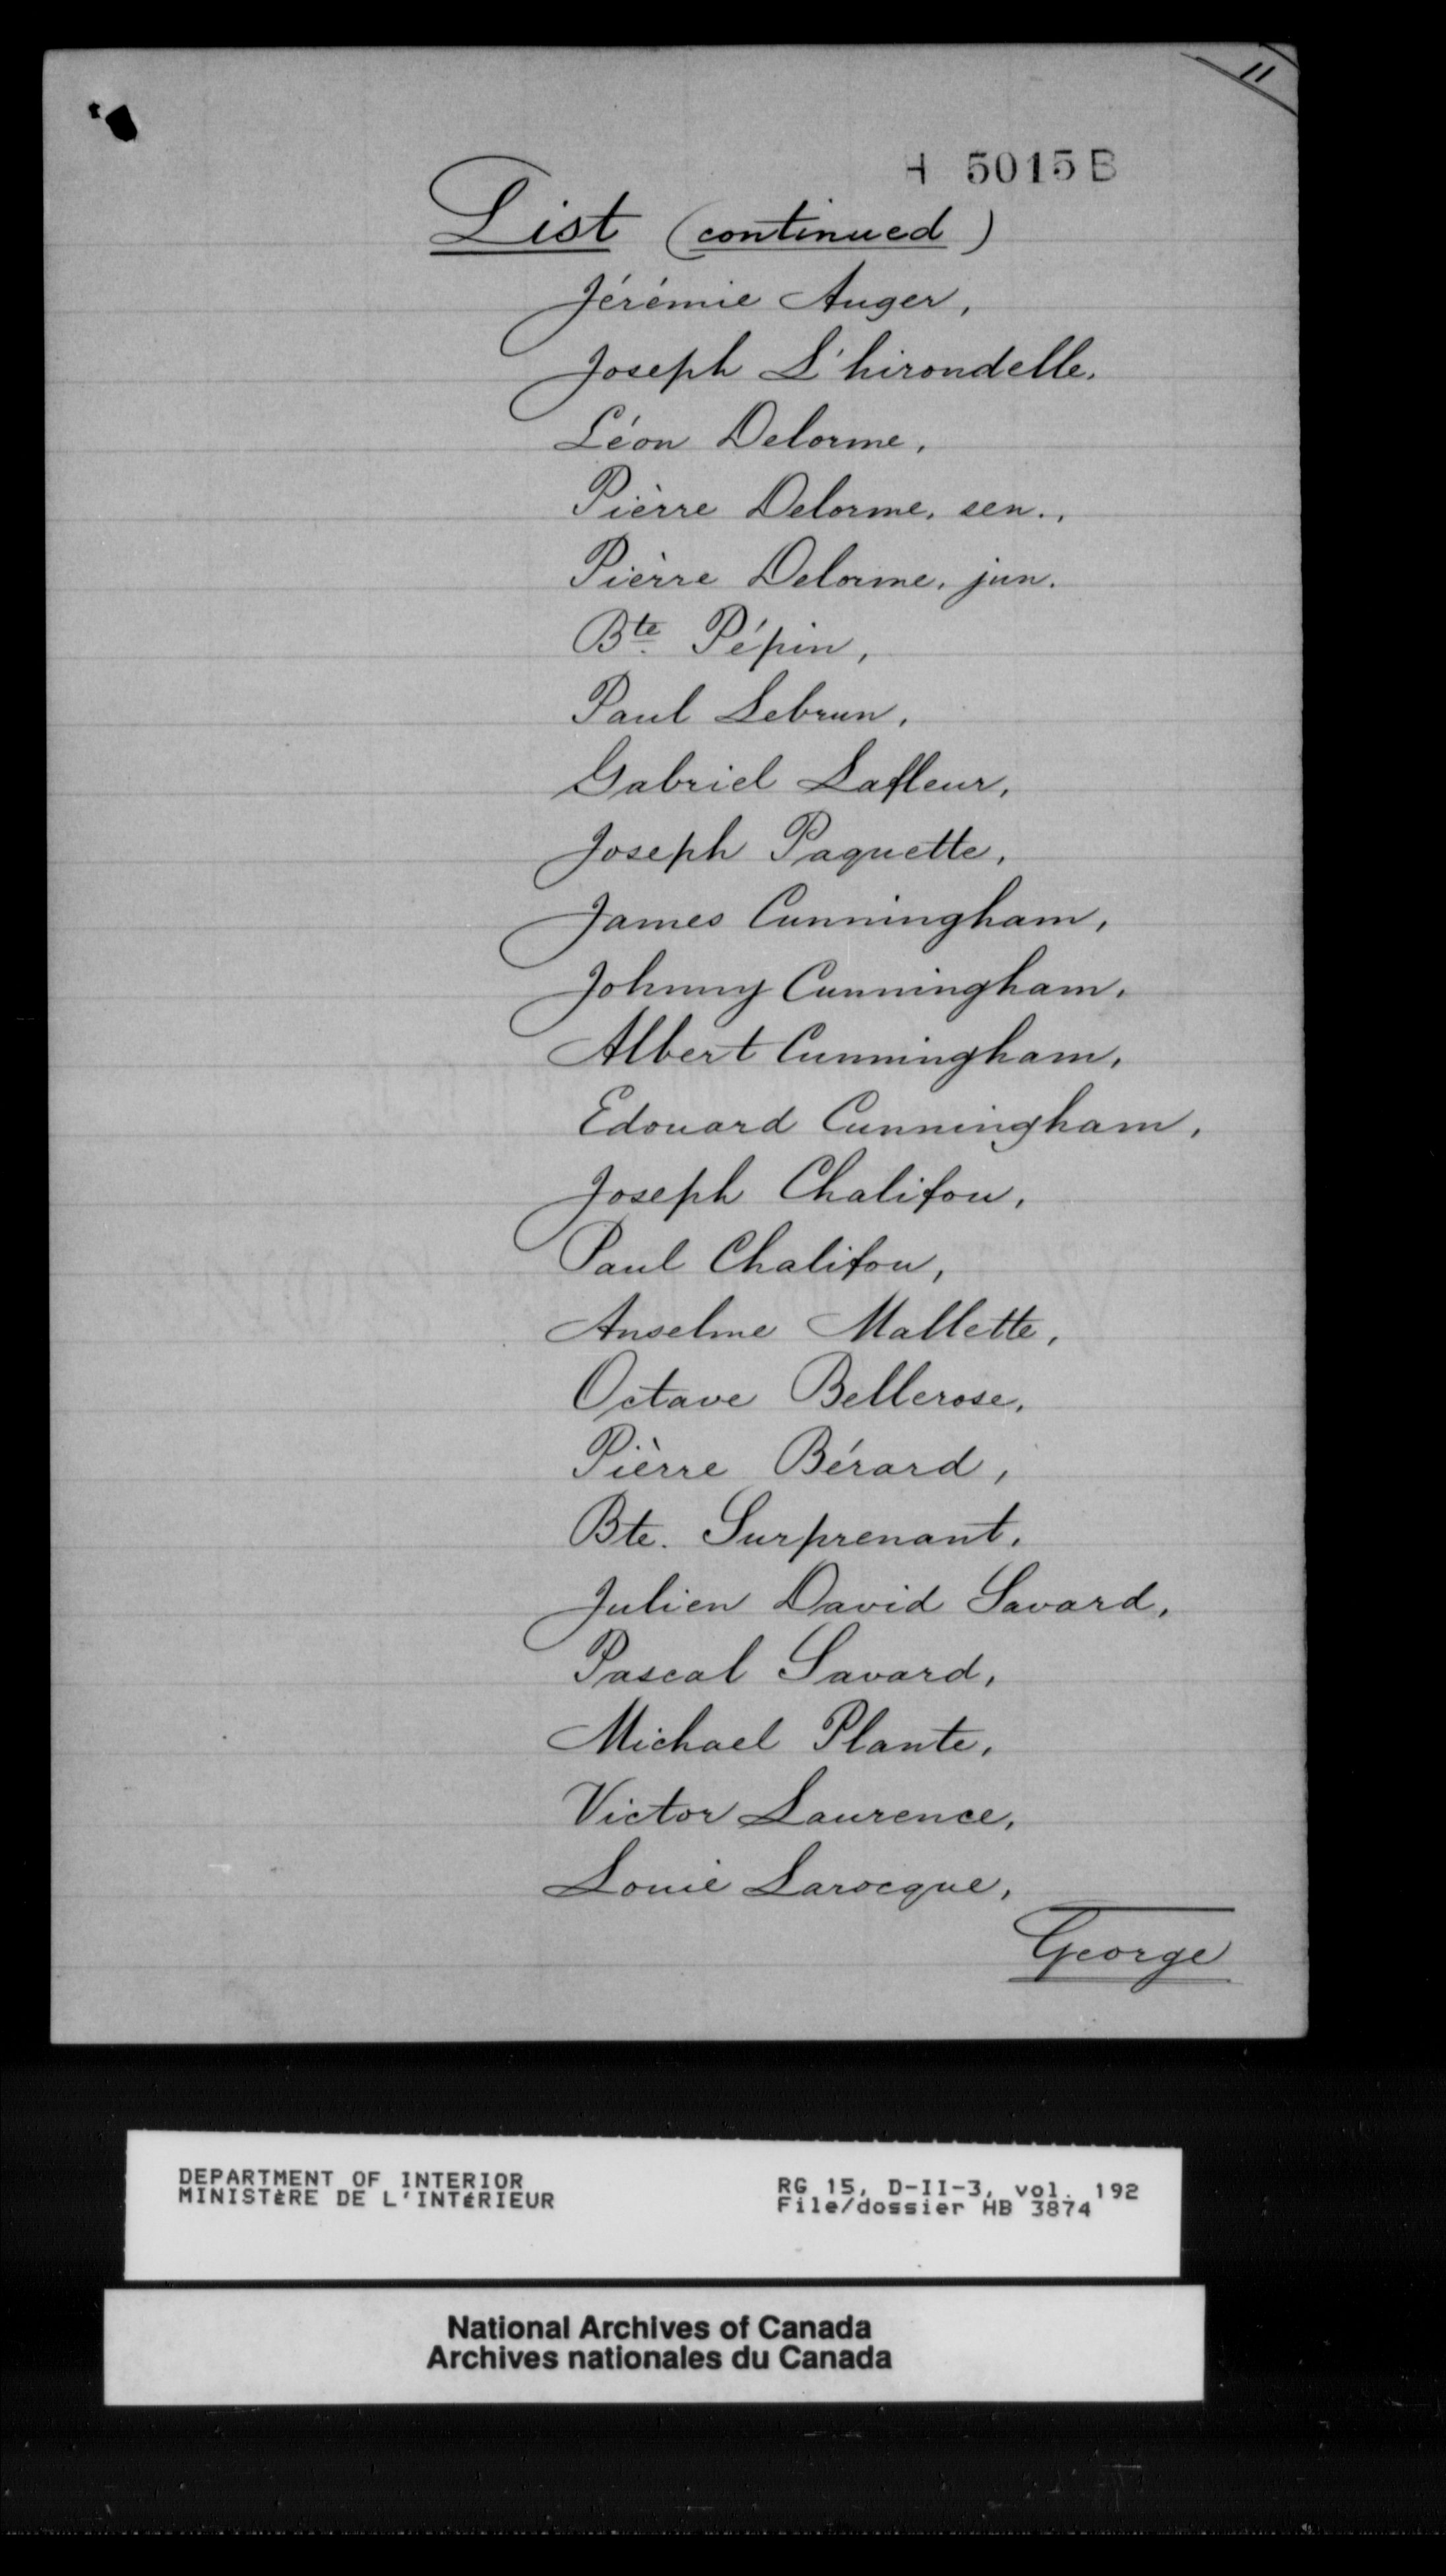 11
H 5015 B
List (continued)
Jérémie Auger,
Joseph L'hirondelle.
Léon Delorme,
Pièrre Delorme, sen.,
Pièrre Delorme, jun.
Bte. Pépin,
Paul Lebrun,
Gabriel Lafleur,
Joseph Paquette,
James Cunningham,
Johnny Cunningham,
Albert Cunningham,
Edouard Cunningham,
Joseph Chalifou,
Paul Chalifou,
Anselme Mallette,
Octave Bellerose,
Pièrre Bérard,
Bte. Surprenant,
Julien David Savard,
Pascal Savard,
Michael Plante,
Victor Laurence,
Louie Larocque,
George
DEPARTMENT OF INTERIOR
MINISTÈRE DE L'INTÉRIEUR
RG 15, D-II-3, vol. 192
File/dossier HB 3874
National Archives of Canada
Archives nationales du Canada